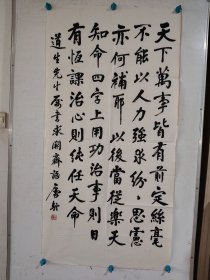 天下萬事皆有前定絲毫
不能以人力強求紛々思慮
亦何補耶以後當從樂天
知命四字上用功治事則日
有恆課治心則純任天命
道生先生屬書求闕齋語 唐駝